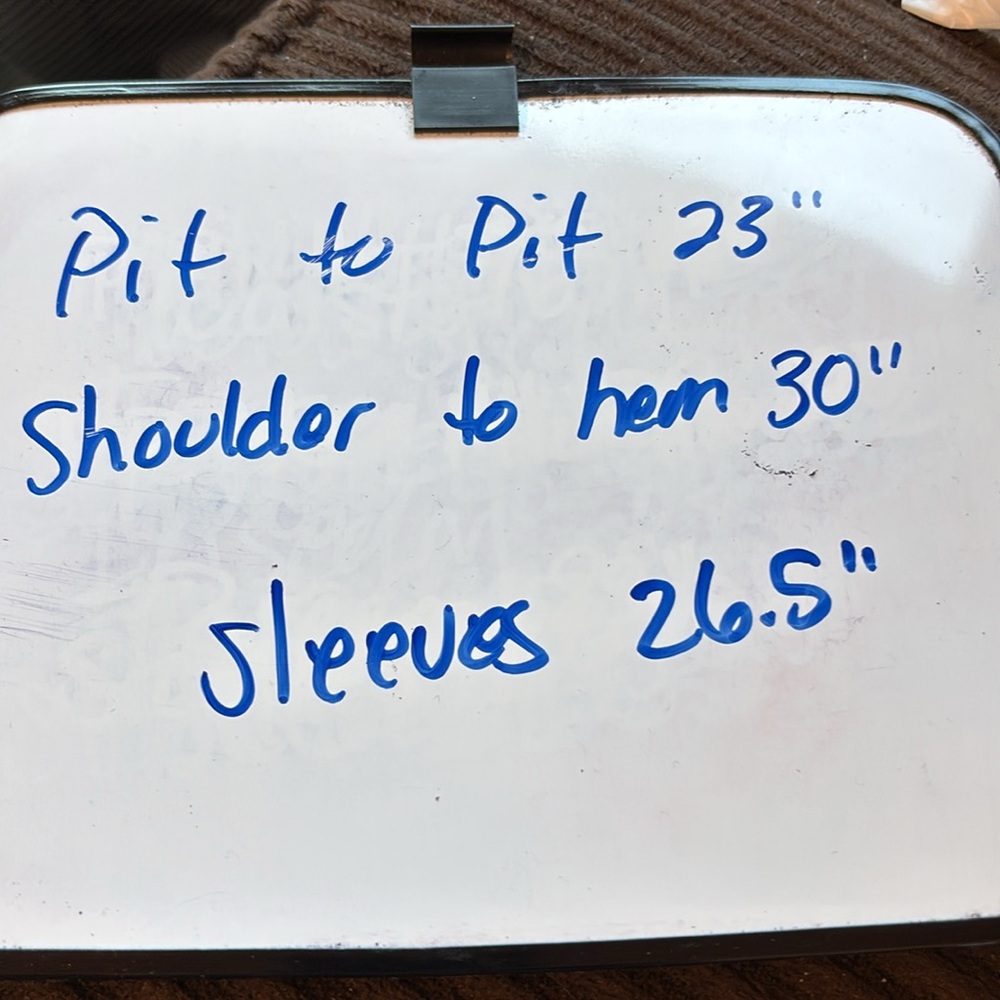 Pit to Pit 23"
Shoulder to hem 30"
Sleeves 26.5"